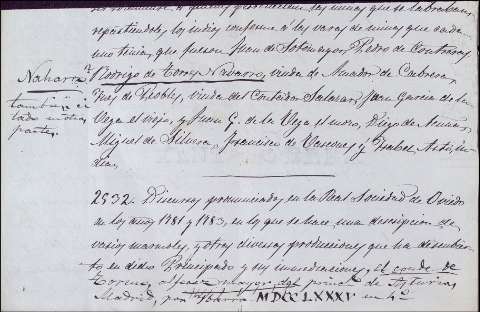 repartiéndole los indios conforme a las varas de minas que cada
uno tenia, que fueron Juan de Sotomayor, Pedro de Contreras
Rodrigo de Torres Navarra, viuda de Amador de Cabrera,
Inés de Robles, viuda del Contador Salazar, Juan Garcia de la
Vega el viejo, y Juan G. de la Vega el mozo, Diego de
Miguel de Silvera, Francisco de y Isabel
dia.
Naharra
tambien ci
tado en otra
parte.
2532. Discursos pronunciados en la Real Sociedad de Oviedo
en los años 1781 y 1783, en lo que se hace una descripcion de
varios marmoles, y otras diversas producciones que ha descubier
to en dicho Principado y sus inmediaciones, el conde de
Toreno, alferez mayor del princip.º de Asturias
Madrid, por Ibarra MDCCLXXXV en 4º